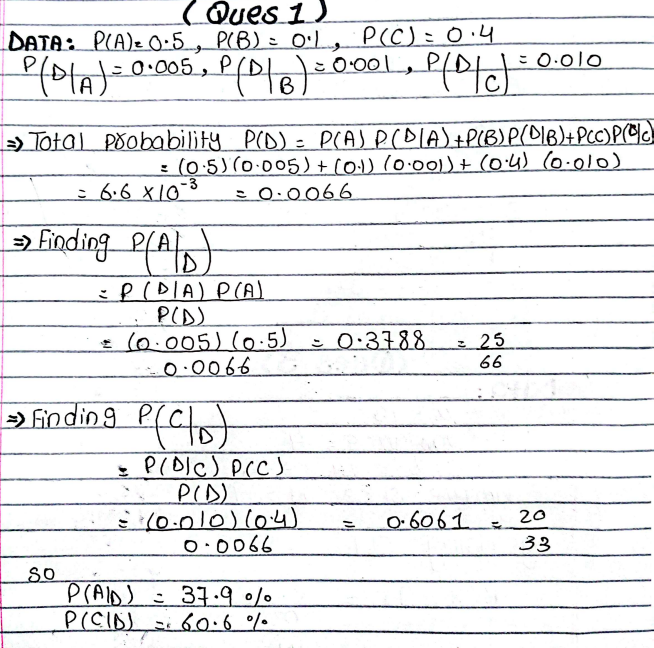 (Ques 1)
DATA: P(A)= 0.5 , P(B) = 0.1 , P(C) = 0.4
P(D|A) = 0.005 , P(D|B) = 0.001 , P(D|C) = 0.010
⇒ Total probability P(D) = P(A) P(D|A) + P(B) P(D|B) + P(C) P(D|C)
= (0.5) (0.005) + (0.1) (0.001) + (0.4) (0.010)
= 6.6 × 10⁻³ = 0.0066
⇒ Finding P(A|D)
= P(D|A) P(A)
P(D)
= (0.005) (0.5) = 0.3788 = 25
0.0066 66
⇒ Finding P(C|D)
= P(D|C) P(C)
P(D)
= (0.010) (0.4) = 0.6061 = 20
0.0066 33
so
P(A|D) = 37.9 %
P(C|D) = 60.6 %